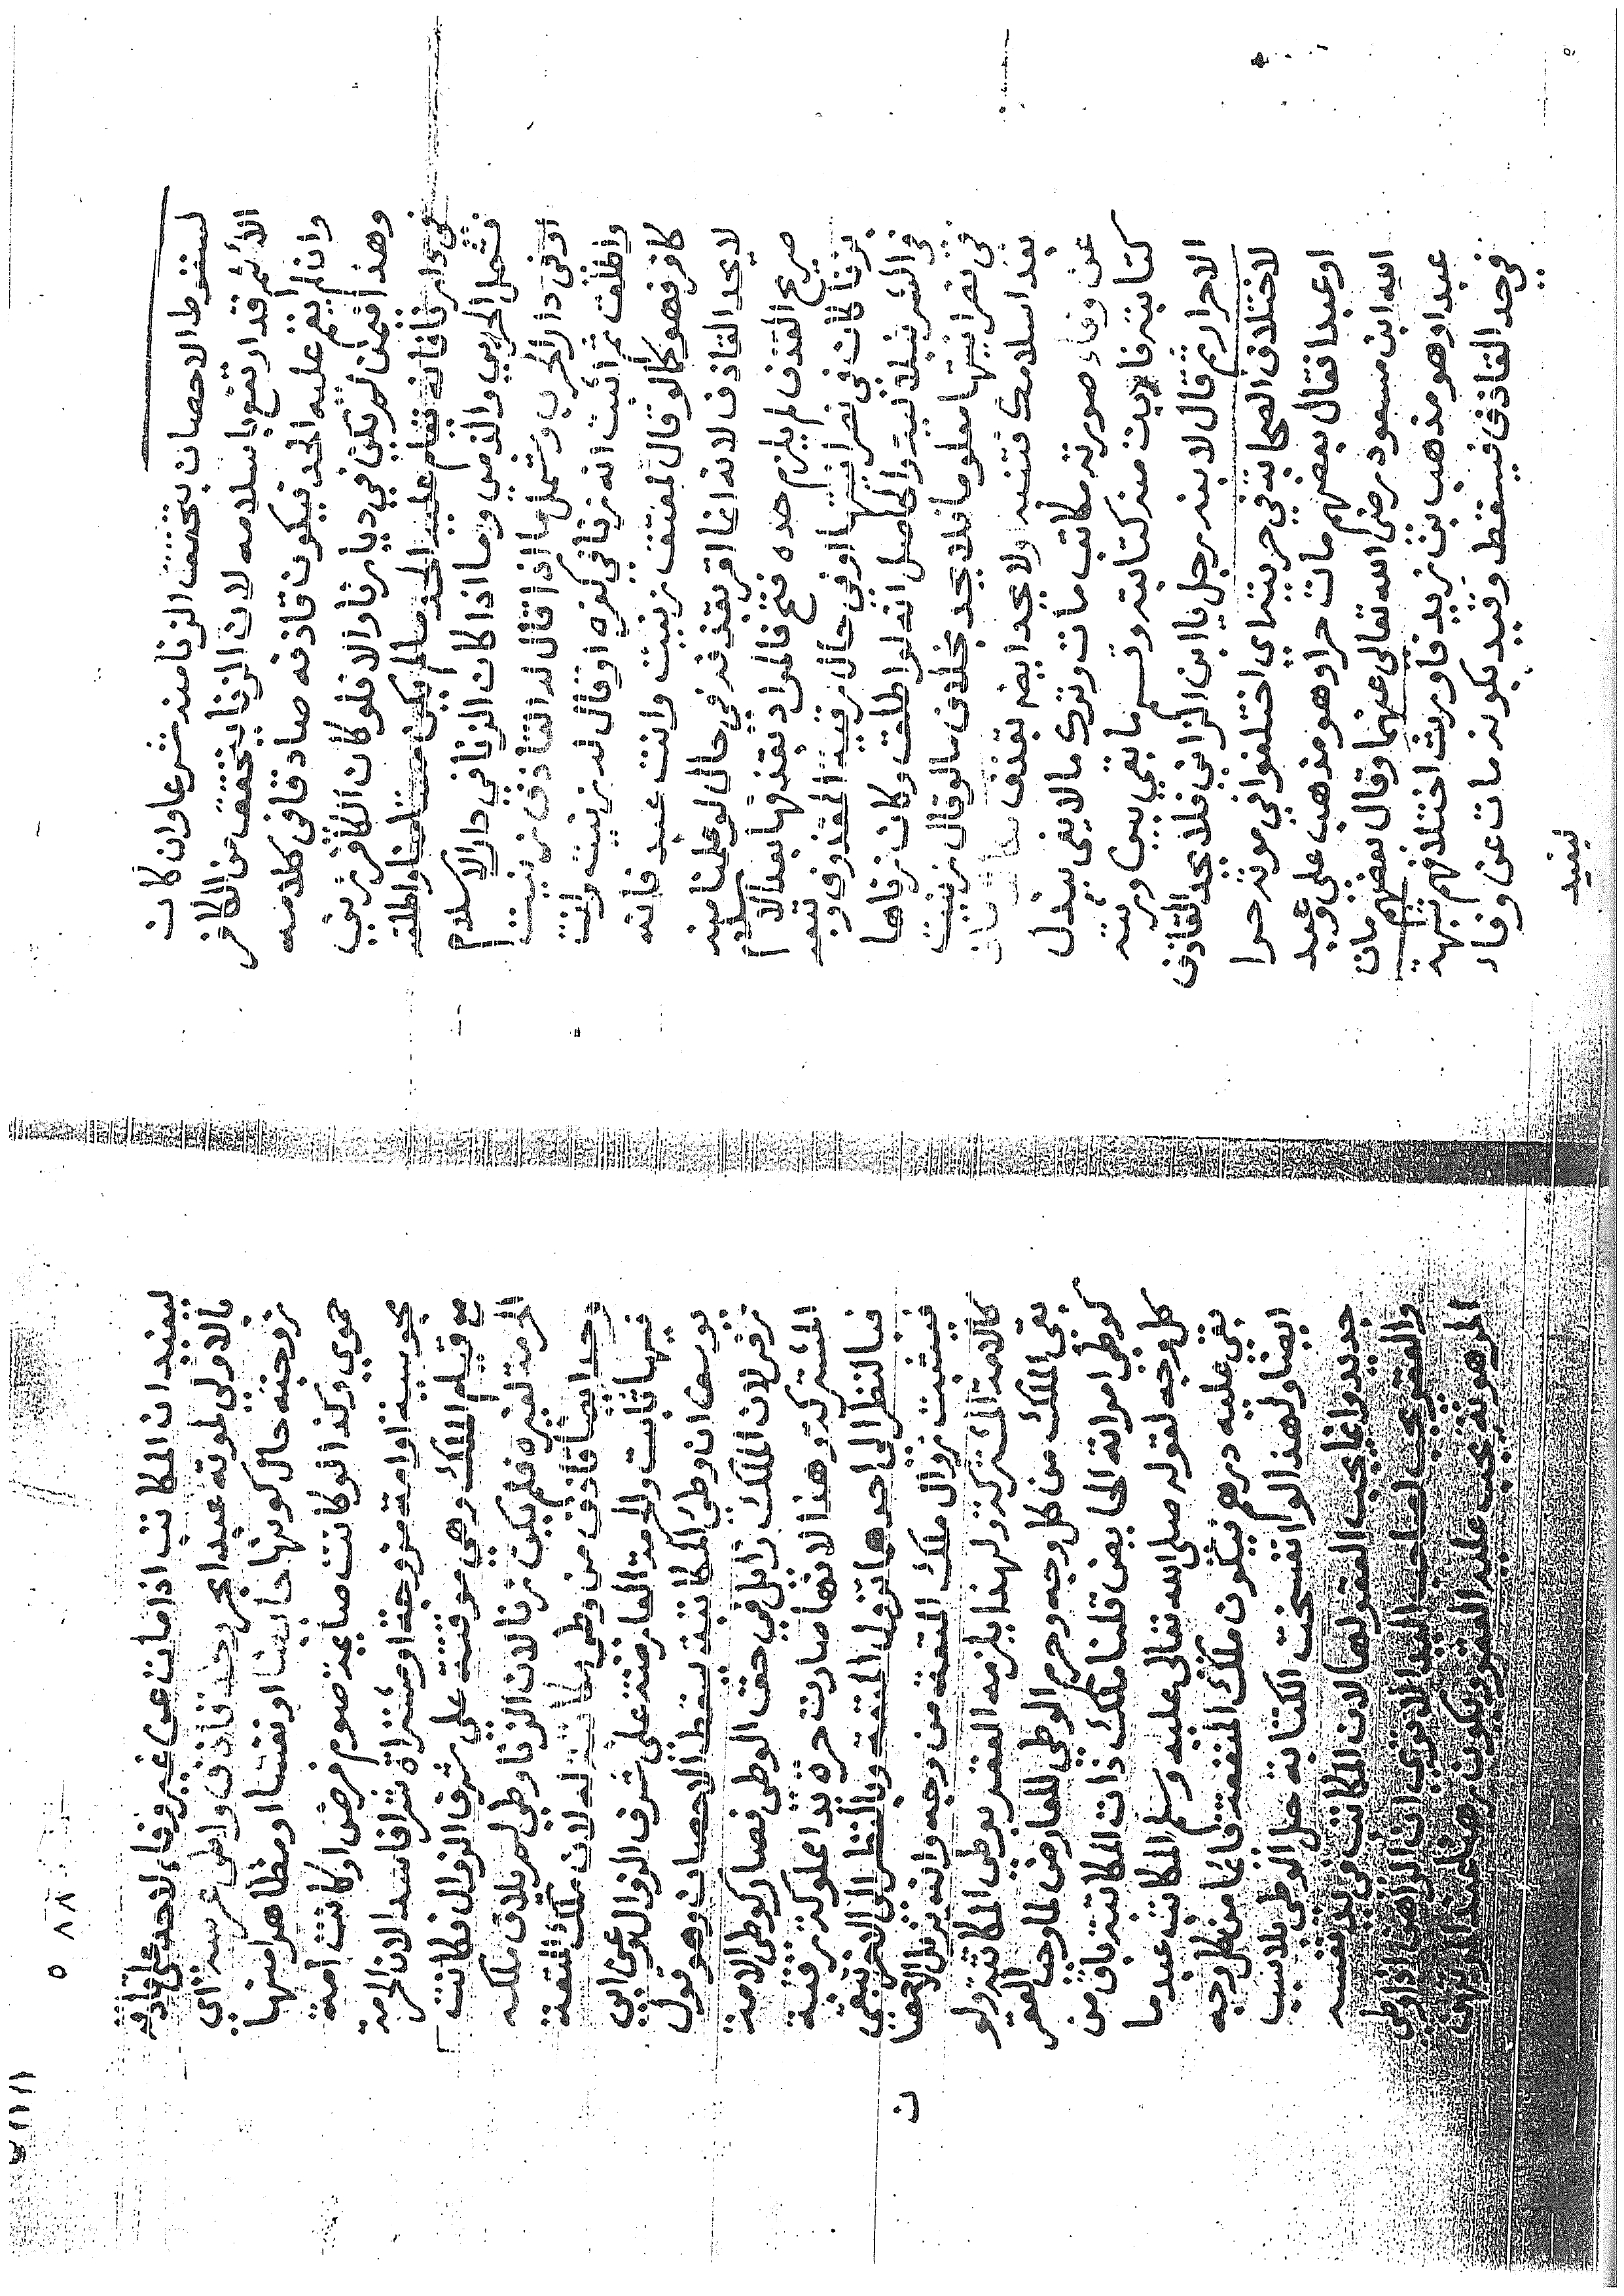 لسقوط الاحصان بتحقق الزنا منه شرعا وان كان
الاثم قد ارتفع باسلامه لان الزنا يتحقق من الكافر
وان لم يقم عليه الحد فيكون قاذفه صادقا في كلامه
وهذا فيمن لم يكن في ديارنا والا فلو كان الكافر زنى
في دارنا فانه تقام عليه الحد ما لم يكن مستامنا واطلقه
فشمل الحربي والذمي وما اذا كان الزنا في دار الاسلام
او في دار الحرب وشمل ما اذا قال له القاذف زنيت
واطلق ثم اثبت انه زنا في كفره او قال له زنيت وانت
كافر فهو كما لو قال لمعتق زنيت وانت عبد فانه
لا يحد القاذف لانه انما اقر بقذفه في حال لو علمنا منه
صريح القذف لم يلزم حده فتح فالمراد بقذفها بعد الاسلام
بزنا كان في نصرانيتها او في حال رقية المقذوف وتبعه
في الشرنبلالية والحاصل انه لو اطلق وكان زناها
في نصرانيتها معلوما فلا يحد بخلاف ما لو قال زنيت
بعد اسلامك فتنبه ولا يحد ايضا بقذف مكاتب مات
عن وفاء صورته مكاتب مات وترك مالا يفي ببدل
كتابته فاديت منه كتابته وقسم ما بقي بين ورثته
الاحرار ثم قال لابنه رجل يا ابن الزاني فلا يحد القاذف
لاختلاف الصحابة في حريته اي اختلفوا في موته حرا
او عبدا فقال بعضهم مات حرا وهو مذهب علي وعبد
الله ابن مسعود رضي الله تعالى عنهما وقال بعضهم مات
عبدا وهو مذهب زيد بن ثابت فاورث اختلافهم شبهة
في حد القاذف فيسقط وقيد بكونه مات عن وفاء
ليفيد
٥ ٨٨
ليفيد ان المكاتب اذا مات عن غير وفاء لا حد على قاذفه
بالاولى لموته عبدا بحر وحد قاذف واطي عرسه اي
زوجته حال كونها حايضا او نفسا او مظاهر منها
حموي وكذا لو كانت صايمة صوم فرض او كانت امة
مجوسية او امة مزوجة او مشتراة شرا فاسدا لان الحرمة
مع قيام الملك وهي موقتة على شرف الزوال فكانت
الحرمة لغيره فلم يكن زنا لان الزنا وطي لم يلاق ملكه
وحد ايضا قاذف من وطي مكاتبه له لان ملك المتعة
فيها ثابت والحرمة العارضة على شرف الزوال وعن ابي
يوسف ان وطئ المكاتبة يسقط الاحصان وهو قول
زفر لان الملك زائل في حق الوطي فصار كوطي الامة
المشتركة وهذا لانها صارت حرة يدا مملوكة رقبة
فبالنظر الى احدهما تزول المتعة وبالنظر الى الاخر تبقى
فيثبت زوال ملك المتعة من وجه وانه يزيل الاحصا
ن
كالامة المشتركة ولهذا يلزمه العقر بوطي المكاتبة ولو
بقي الملك من كل وجه وحرم الوطي للعارض لما وجب العقر
كوطي امراته الحايض قلنا ملك ذات المكاتبة باق من
كل وجه لقوله صلى الله تعالى عليه وسلم المكاتب عبد ما
بقي عليه درهم فيكون ملك المتعة قائما من كل وجه
ايضا ولهذا لو انفسخت الكتابة حل الوطي بلا سبب
جديد وانما يجب العقر لها لان المكاتب في يد نفسه
والعقر يجب لصاحب اليد الا ترى ان الراهن اذا وطي
المرهونة يجب عليه العقر ويكون رهنا عند المرتهن